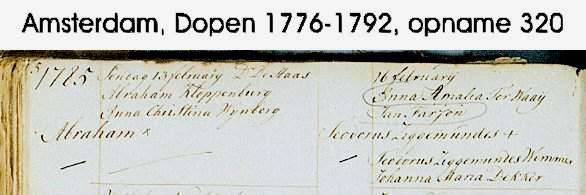 Amsterdam, Dopen 1776-1792, opname 320
1785 Sondag 13 february Ds De Haas
Abraham Kleppenburg
Anna Christina Wynberg
Abraham x
16 february
Anna Amalia Ter Waaij
Jan Farjon
Severus Ziggemundes +
Severus Ziggemundes Wimmer
Johanna Maria Dekker